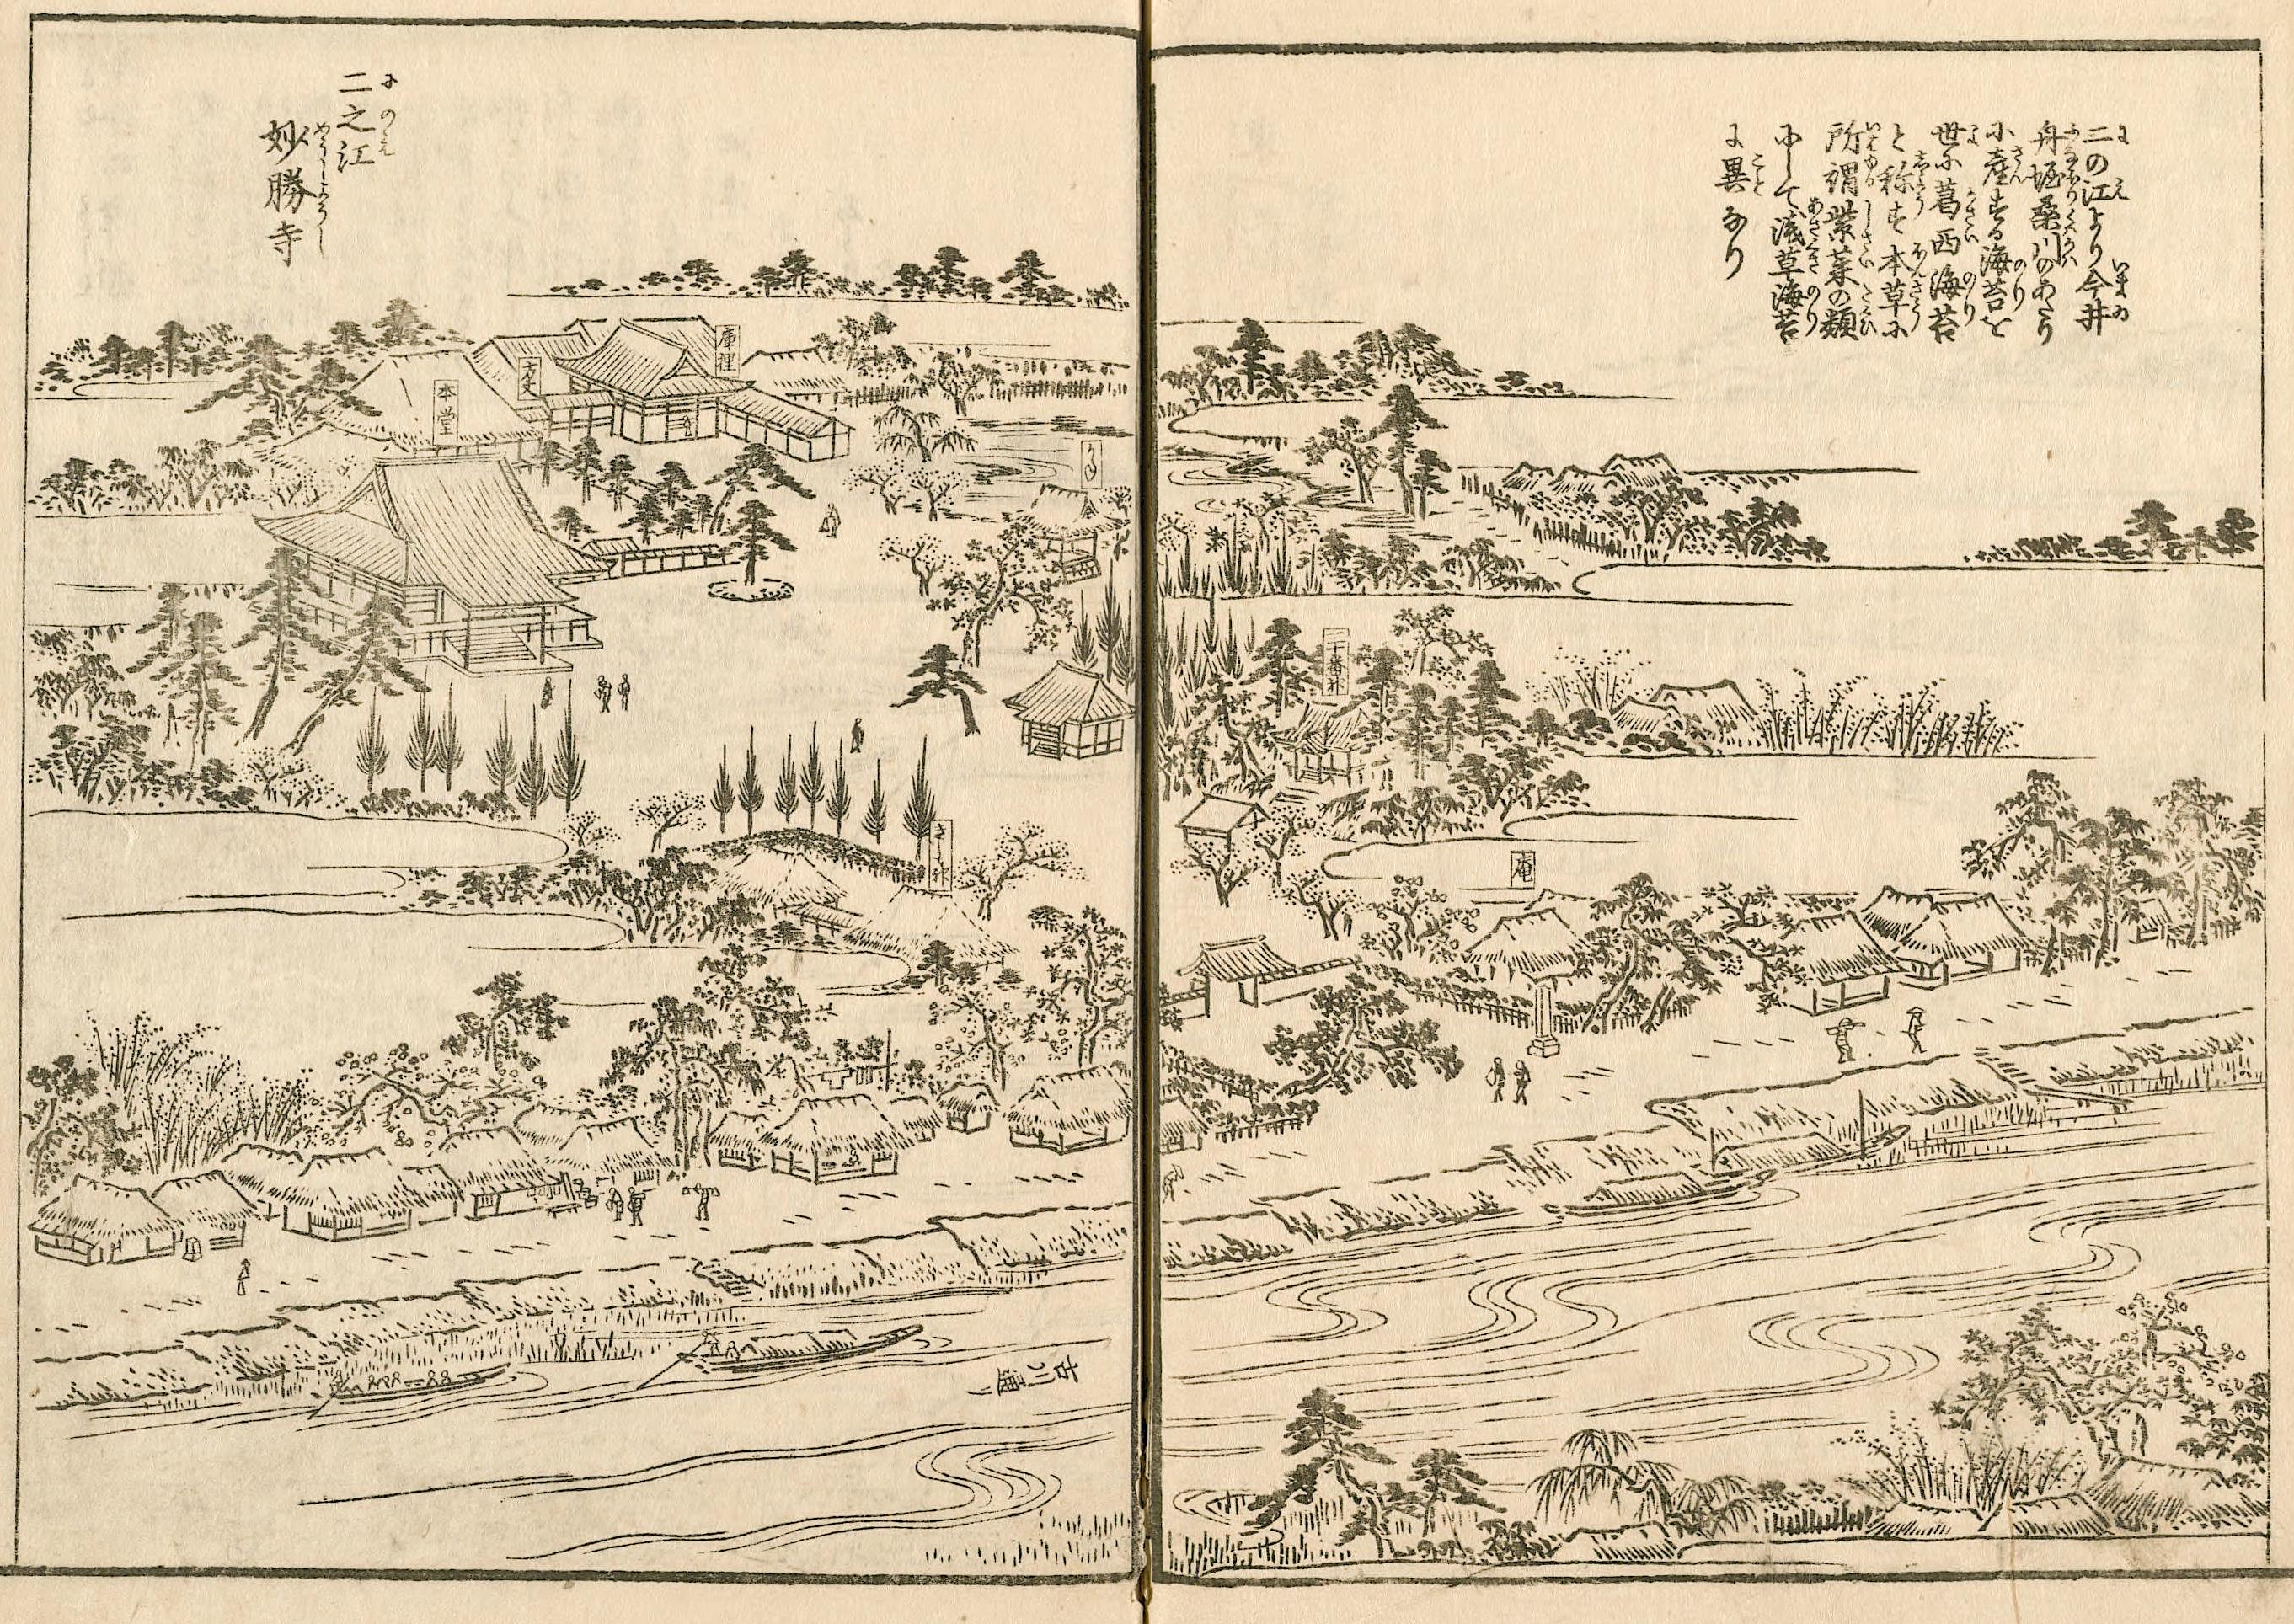 二の江より今井
舟堀桑川のあたり
に産する海苔を
世に葛西海苔
と称す本草に
所謂紫菜の類
にして浅草海苔
に異なり
三十番神
庵
二之江
にのえ
妙勝寺
本堂
方丈
庫裡
古川通り